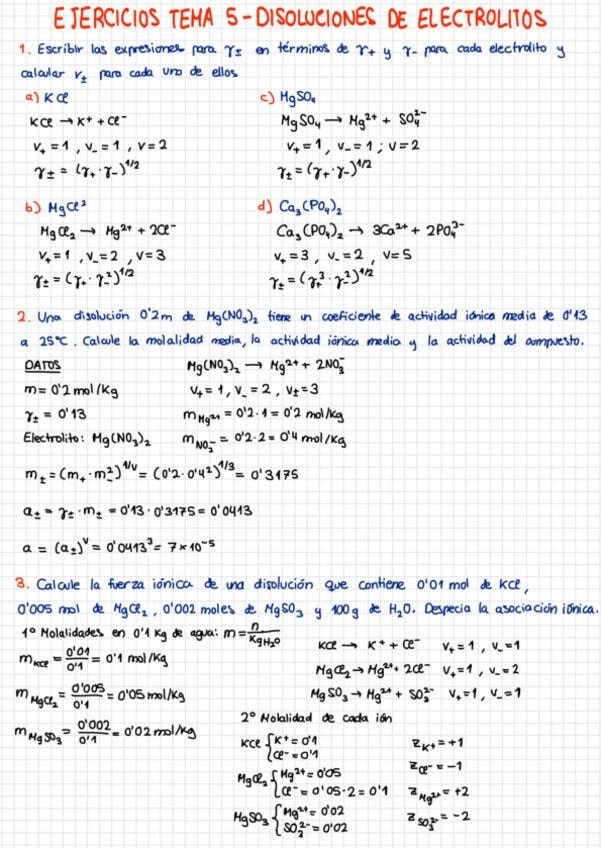 EJERCICIOS TEMA 5 - DISOLUCIONES DE ELECTROLITOS
1. Escribir las expresiones para γ± en términos de γ+ y γ- para cada electrolito y
calcular γ± para cada uno de ellos
a) KCl
KCl → K+ + Cl⁻
V₊ = 1 , V₋ = 1 , V = 2
γ± = (γ₊ · γ₋)^1/2
c) MgSO₄
MgSO₄ → Mg²⁺ + SO₄²⁻
V₊ = 1 , V₋ = 1 ; V = 2
γ± = (γ₊ · γ₋)^1/2
b) MgCl²
MgCl₂ → Mg²⁺ + 2Cl⁻
V₊ = 1 , V₋ = 2 , V = 3
γ± = (γ₊ · γ₋²)^1/2
d) Ca₃(PO₄)₂
Ca₃(PO₄)₂ → 3Ca²⁺ + 2PO₄³⁻
V₊ = 3 , V₋ = 2 , V = 5
γ± = (γ₊³ · γ₋²)^1/2
2. Una disolución 0'2m de Mg(NO₃)₂ tiene un coeficiente de actividad iónica media de 0'13
a 25°C. Calcule la molalidad media, la actividad iónica media y la actividad del compuesto.
DATOS
m = 0'2 mol/Kg
γ± = 0'13
Electrolito: Mg(NO₃)₂
Mg(NO₃)₂ → Mg²⁺ + 2NO₃⁻
V₊ = 1, V₋ = 2 , V± = 3
m Mg²⁺ = 0'2 · 1 = 0'2 mol/kg
m NO₃⁻ = 0'2 · 2 = 0'4 mol/Kg
m± = (m₊ · m₋²)^1/V = (0'2 · 0'4²)^1/3 = 0'3175
a± = γ± · m± = 0'13 · 0'3175 = 0'0413
a = (a±)^V = 0'0413³ = 7 × 10⁻⁵
3. Calcule la fuerza iónica de una disolución que contiene 0'01 mol de KCl,
0'005 mol de MgCl₂ , 0'002 moles de MgSO₃ y 100g de H₂O. Desprecia la asociación iónica.
1º Molalidades en 0'1 Kg de agua: m = n / Kg H₂O
m KCl = 0'01 / 0'1 = 0'1 mol/Kg
m MgCl₂ = 0'005 / 0'1 = 0'05 mol/Kg
m MgSO₃ = 0'002 / 0'1 = 0'02 mol/Kg
KCl → K⁺ + Cl⁻ V₊ = 1 , V₋ = 1
MgCl₂ → Mg²⁺ + 2Cl⁻ V₊ = 1 , V₋ = 2
MgSO₃ → Mg²⁺ + SO₃²⁻ V₊ = 1, V₋ = 1
2º Molalidad de cada ión
KCl { K⁺ = 0'1
Cl⁻ = 0'1
MgCl₂ { Mg²⁺ = 0'05
Cl⁻ = 0'05 · 2 = 0'1
MgSO₃ { Mg²⁺ = 0'02
SO₃²⁻ = 0'02
Z K⁺ = +1
Z Cl⁻ = -1
Z Mg²⁺ = +2
Z SO₃²⁻ = -2